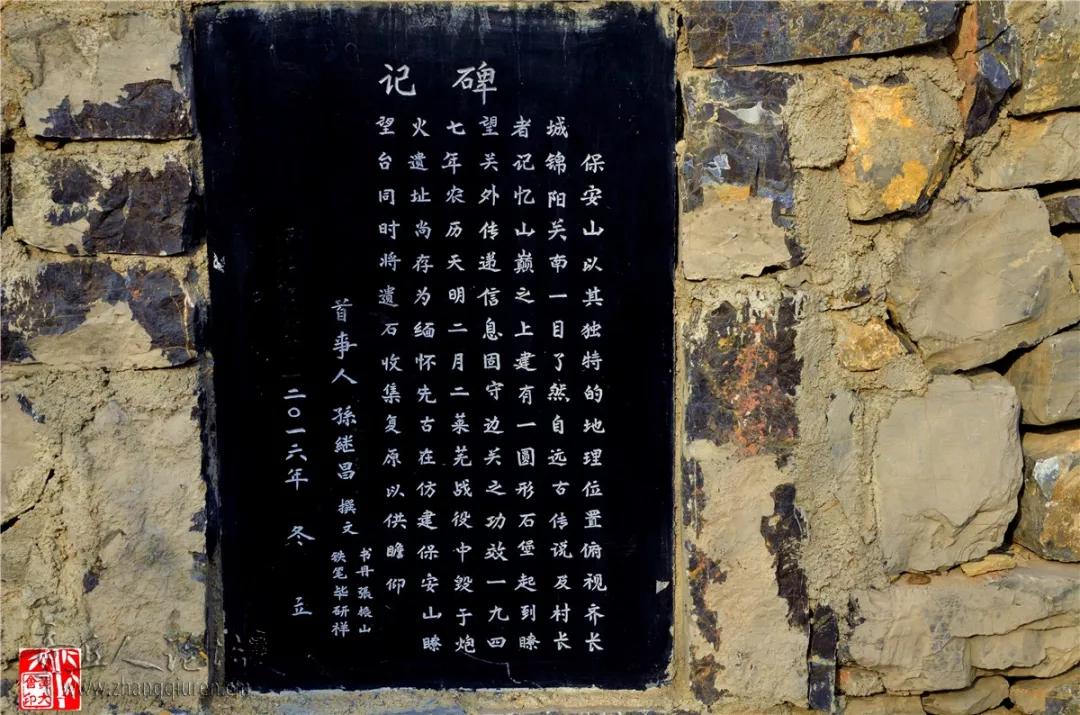 碑记
保安山以其独特的地理位置俯视齐长
城锦阳关南一目了然自远古传说及村长
者记忆山巅之上建有一圆形石堡起到瞭
望关外传递信息固守边关之功效一九四
七年农历天明二月二莱芜战役中毁于炮
火遗址尚存为缅怀先古在仿建保安山瞭
望台同时将遗石收集复原以供瞻仰
首事人 孫继昌 撰文
书丹 張振山
铁笔 毕研祥
二〇一六年 冬 立